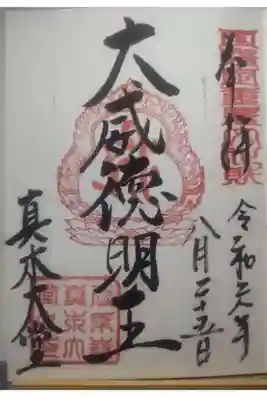 奉拝
令和元年
八月二十五日
大威徳明王
真木大堂